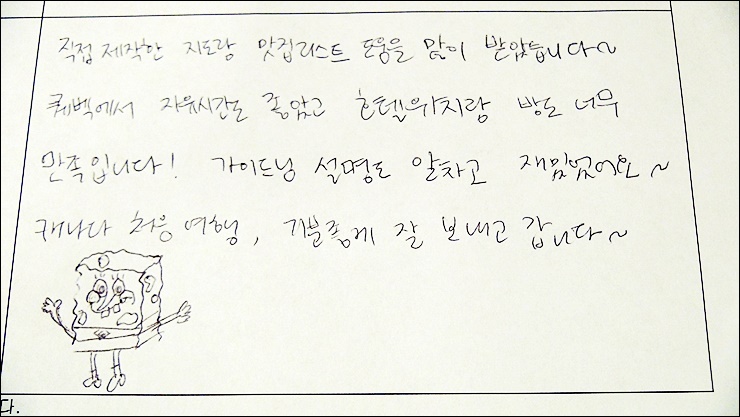 직접 제작한 지도랑 맛집리스트 도움을 많이 받았습니다~
퀘벡에서 자유시간도 좋았고 호텔위치랑 방도 너무
만족입니다! 가이드님 설명도 알차고 재밌었어요~
캐나다 처음 여행, 기분좋게 잘 보내고 갑니다~
다.